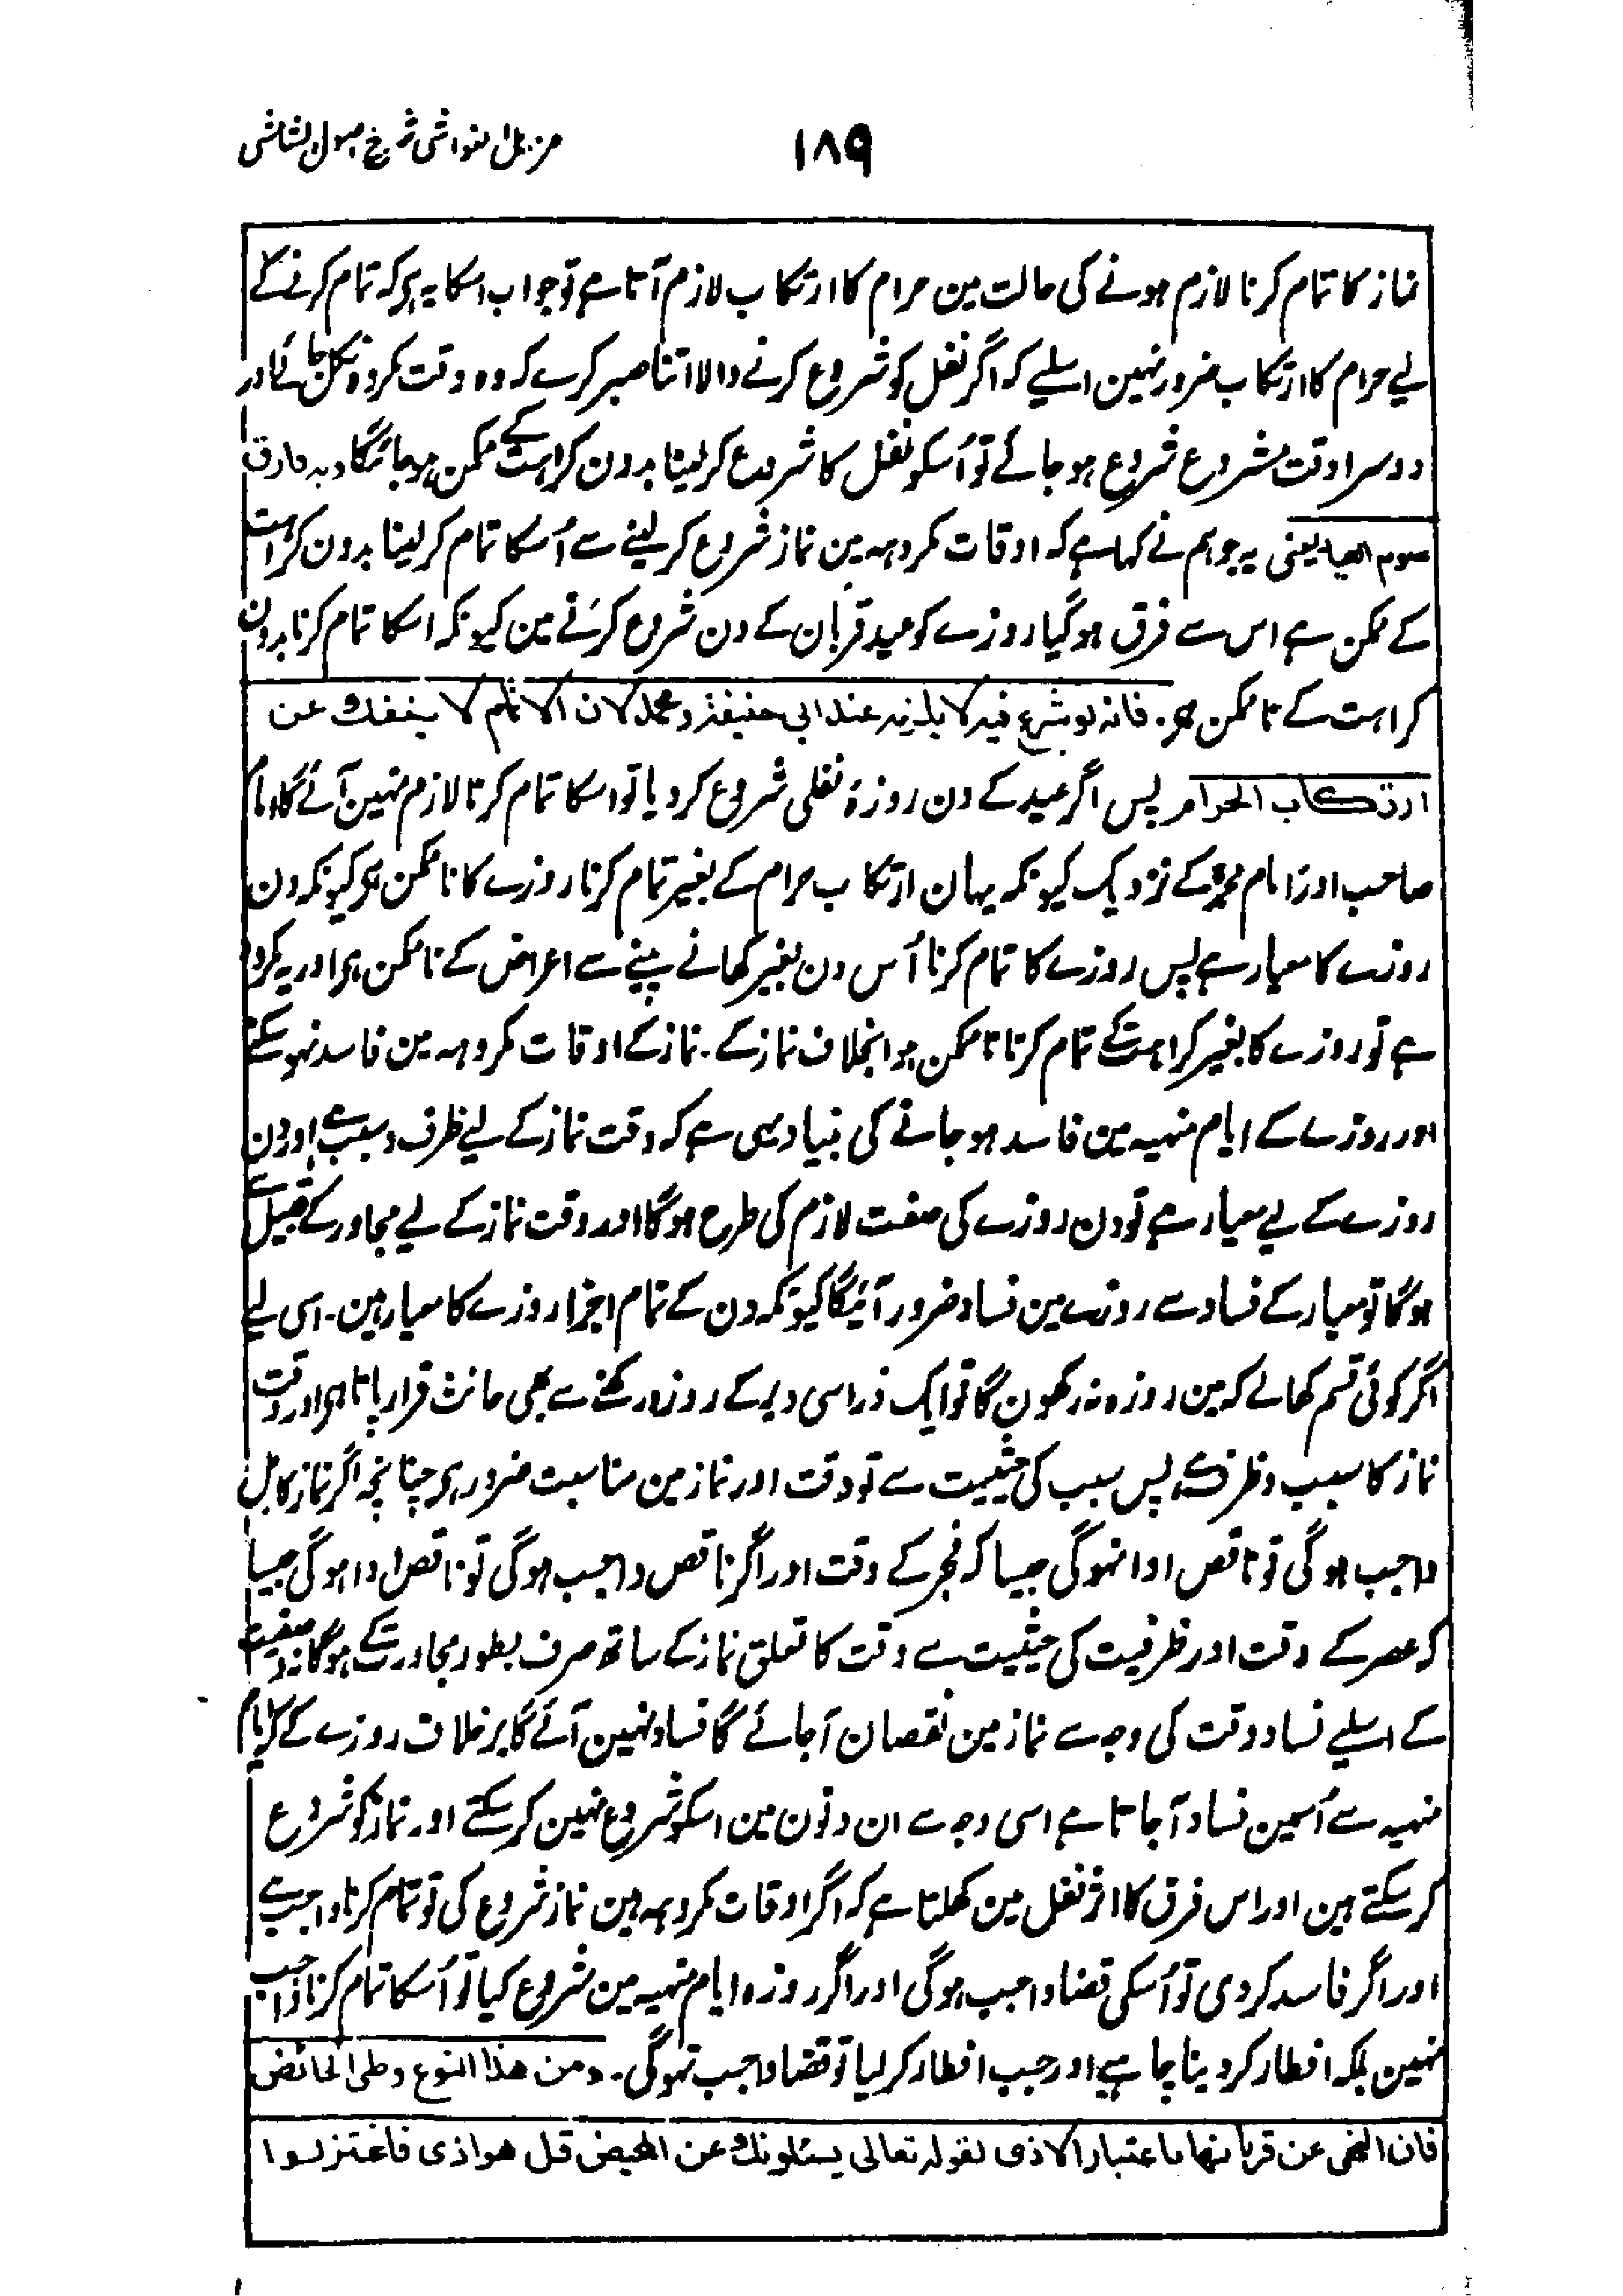 ۱۸۹
مزیل الغواشی شرح اصول الشاشی
نماز کا تمام کرنا لازم ہونے کی حالت مین حرام کا ارتکاب لازم آتا ہے تو جواب اسکا یہ ہی کہ تمام کرنے کے
لیے حرام کا ارتکاب ضرور نہین اسلیے کہ اگر نفل کو شروع کرنے والا اتنا صبر کرے کہ وہ وقت مکروہ نکل جائے اور
دوسرا وقت مشروع شروع ہو جائے تو اُسکو نفل کا شروع کر لینا بدون کراہت کے ممکن ہو جائیگا وبہ فارق
صوم العید یعنی یہ جو ہم نے کہا ہے کہ اوقات مکروہہ مین نماز شروع کر لینے سے اُسکا تمام کر لینا بدون کراہت
کے ممکن ہے اس سے فرق ہو گیا روزے کو عید قربان کے دن شروع کرنے مین کیونکہ اسکا تمام کرنا بدون
کراہت کے نا ممکن ہی۔ فانہ لو شرع فیہ لا یلزمہ عند ابی حنیفۃ و محمد لان الاتمام لا ینفک عن
ارتکاب الحرام پس اگر عید کے دن روزۂ نفلی شروع کر دیا تو اسکا تمام کرنا لازم نہین آئے گا امام
صاحب اور امام محمدؒ کے نزدیک کیونکہ یہان ارتکاب حرام کے بغیر تمام کرنا روزے کا ناممکن ہی کیونکہ دن
روزے کا معیار ہے پس روزے کا تمام کرنا اُس دن بغیر کھانے پینے سے اعراض کے ناممکن ہی اور یہ مکروہ
ہے تو روزے کا بغیر کراہت کے تمام کرنا نا ممکن ہوا بخلاف نماز کے۔ نماز کے اوقات مکروہہ مین فاسد نہو سکنے
اور روزے کے ایام منہیہ مین فاسد ہو جانے کی بنیاد یہی ہے کہ وقت نماز کے لیے ظرف و سبب ہے اور دن
روزے کے لیے معیار ہے تو دن روزے کی صفت لازم کی طرح ہوگا اور وقت نماز کے لیے مجاور کے قبیل سے
ہوگا تو معیار کے فساد سے روزے مین فساد ضرور آئیگا کیونکہ دن کے تمام اجزا روزے کا معیار ہین۔ اسی لیے
اگر کوئی قسم کھالے کہ مین روزہ نہ رکھون گا تو ایک ذرا سی دیر کے روزہ رکھنے سے بھی حانث قرار پاتا ہی اور وقت
نماز کا سبب و ظرف ہے پس سبب کی حیثیت سے تو وقت اور نماز مین مناسبت ضرور ہی چنانچہ اگر نماز کامل
واجب ہو گی تو ناقص ادا نہو گی جیسا کہ فجر کے وقت اور اگر ناقص واجب ہو گی تو ناقص ادا ہو گی جیسا
کہ عصر کے وقت اور ظرفیت کی حیثیت سے وقت کا تعلق نماز کے ساتھ صرف بطور مجاورت کے ہوگا نہ وصفیت
کے اسلیے فساد وقت کی وجہ سے نماز مین نقصان آ جائے گا فساد نہین آئے گا برخلاف روزے کے کہ ایام
منہیہ سے اُسمین فساد آ جاتا ہے اسی وجہ سے ان دنون مین اسکو شروع نہین کر سکتے اور نماز کو شروع
کر سکتے ہین اور اس فرق کا اثر نفل مین کھلتا ہے کہ اگر اوقات مکروہہ مین نماز شروع کی تو تمام کرنا واجب ہے
اور اگر فاسد کر دی تو اُسکی قضا واجب ہوگی اور اگر روزہ ایام منہیہ مین شروع کیا تو اُسکا تمام کرنا واجب
نہین بلکہ افطار کر دینا چاہیے اور جب افطار کر لیا تو قضا واجب نہوگی۔ ومن ھذا النوع وطی الحائض
فان النھی عن قربانھا باعتبار الاذی لقولہ تعالی یسئلونک عن المحیض قل ھو اذی فاعتزلوا